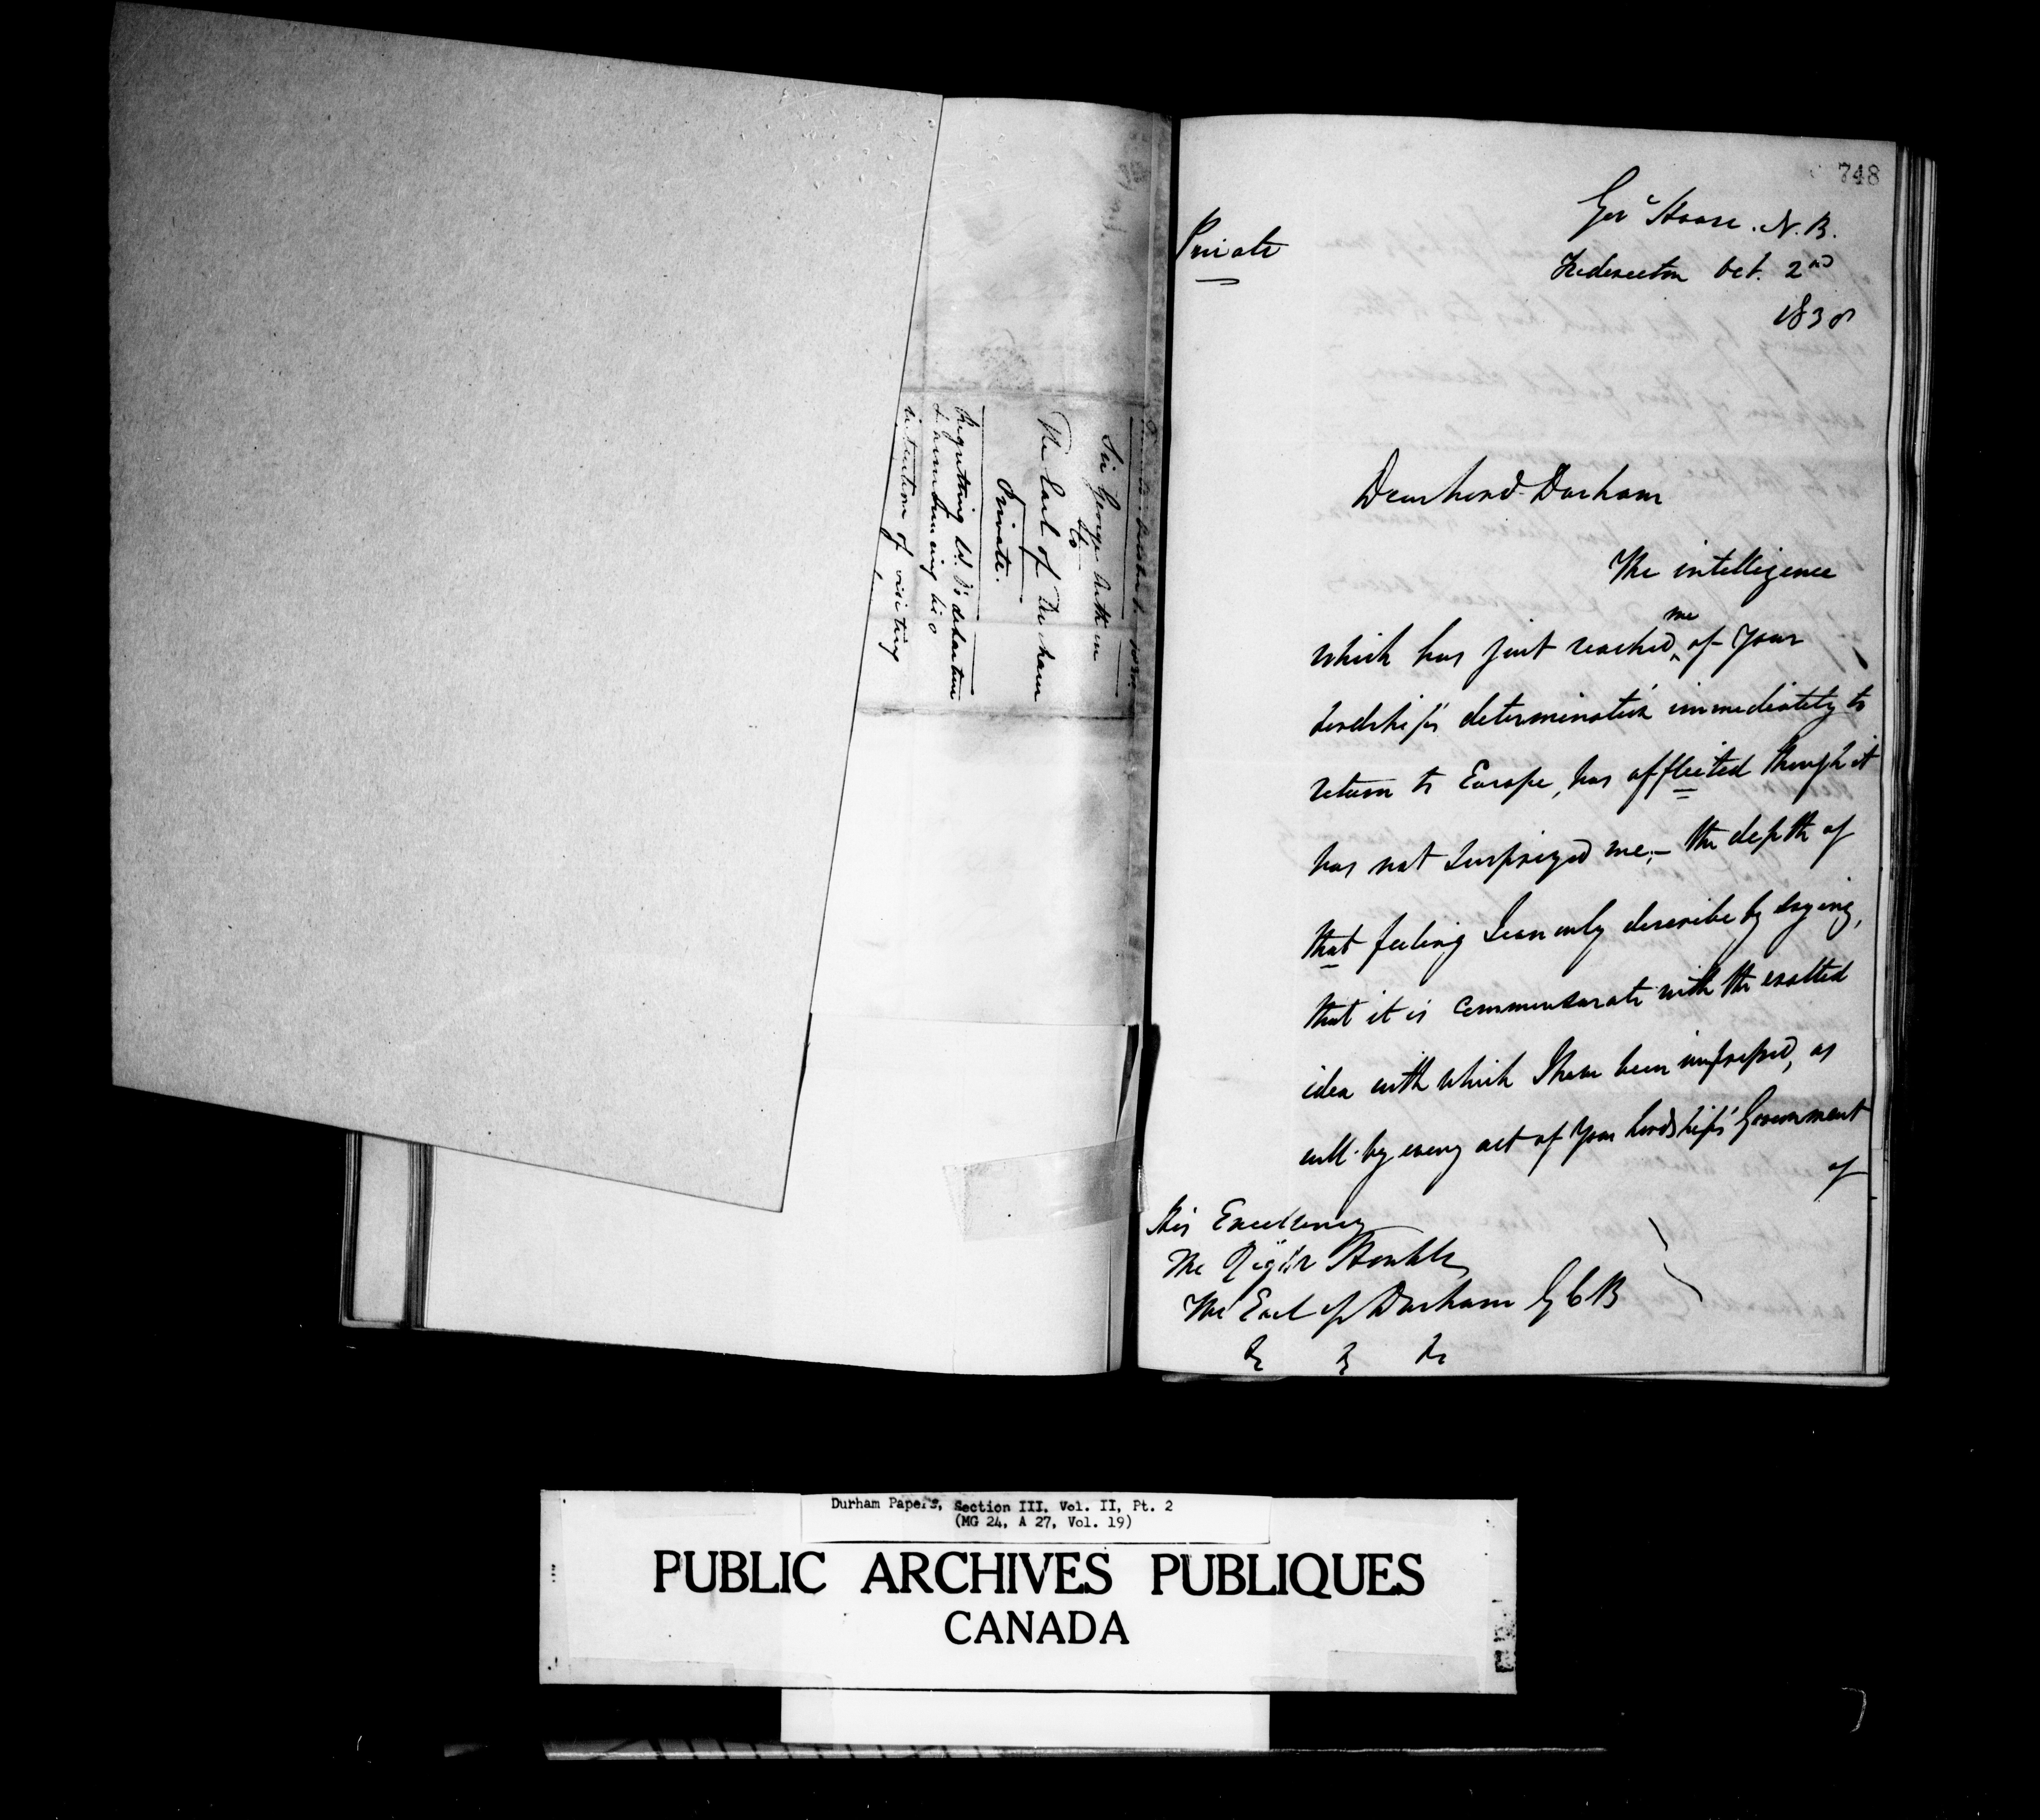 Sir George Arthur
to
The Earl of Durham
Private.
Regretting Ld. D's departure
& announcing his
intention of visiting
748
Private
Govt House. N.B.
Fredericton Oct. 2nd
1838
Dear Lord Durham
The intelligence
which has just reached me of Your
Lordship's determination immediately to
return to Europe, has afflicted though it
has not surprized me;— the depth of
that feeling I can only describe by saying,
that it is commensurate with the exalted
idea with which I have been impressed, as
well by every act of Your Lordship's Government
of
His Excellency
The Right Honble
The Earl of Durham G C B
&c &c &c
Durham Papers, Section III, Vol. II, Pt. 2
(MG 24, A 27, Vol. 19)
PUBLIC ARCHIVES PUBLIQUES
CANADA